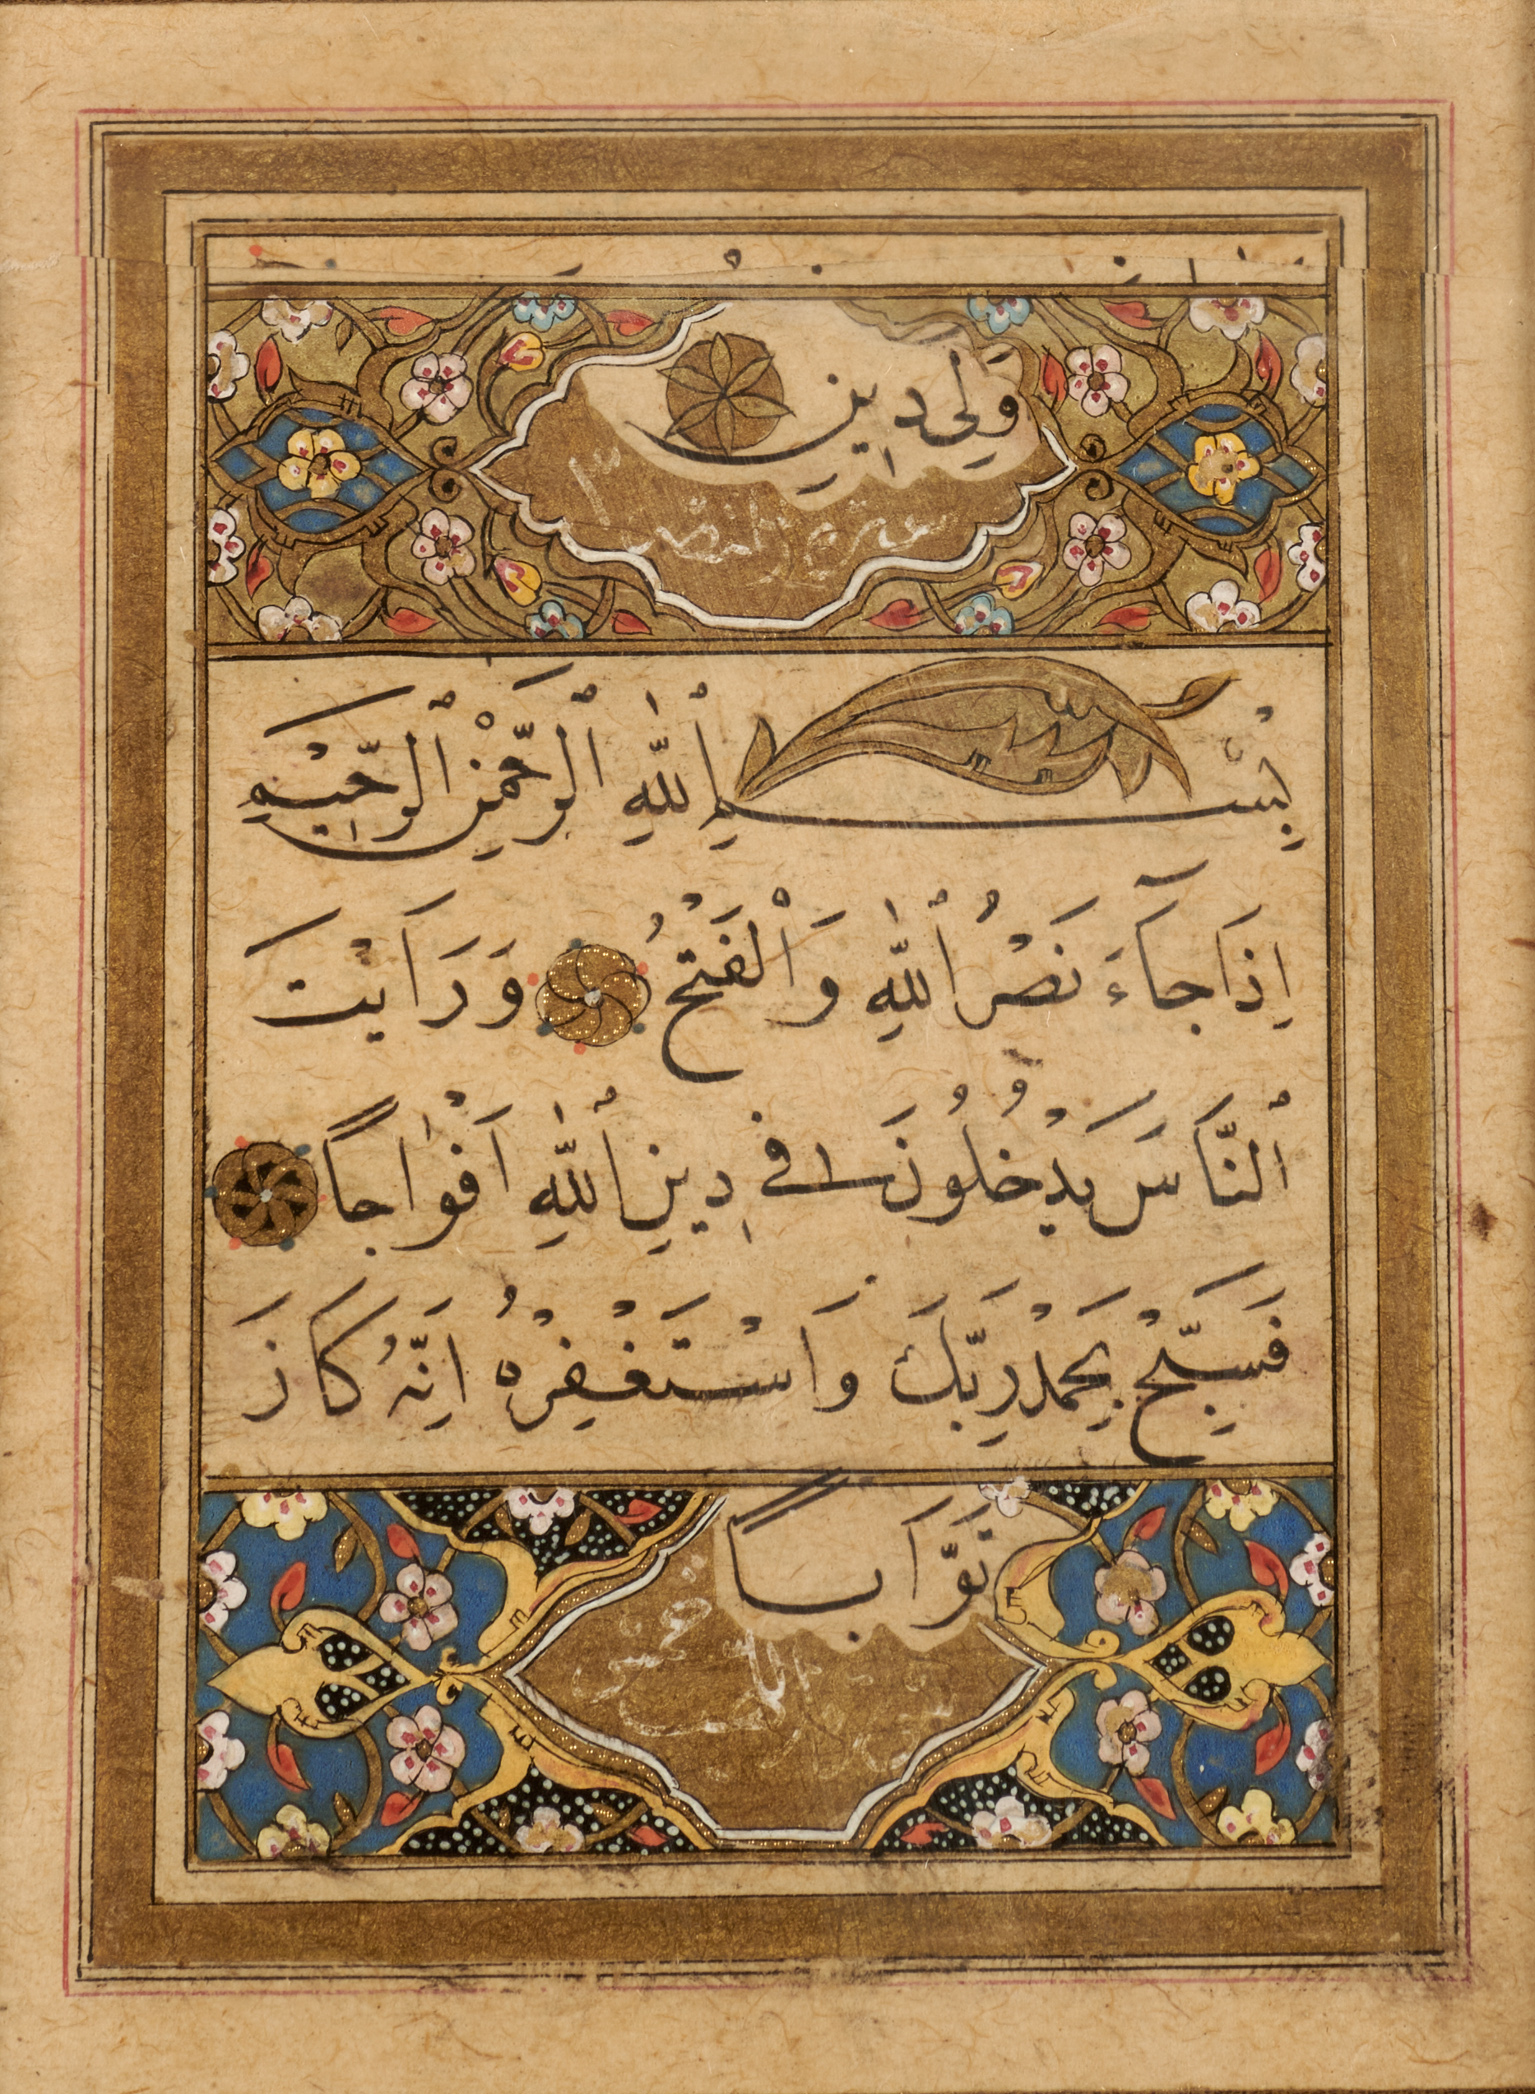 وَلِيَ دِينِ
سورة النصر
بِسْمِ ٱللّٰهِ ٱلرَّحْمٰنِ ٱلرَّحِيمِ
اِذَا جَآءَ نَصْرُ ٱللّٰهِ وَٱلْفَتْحُ وَرَاَيْتَ
ٱلنَّاسَ يَدْخُلُونَ فِي دِينِ ٱللّٰهِ اَفْوَاجًا
فَسَبِّحْ بِحَمْدِ رَبِّكَ وَاسْتَغْفِرْهُ اِنَّهُ كَانَ
تَوَّابًا